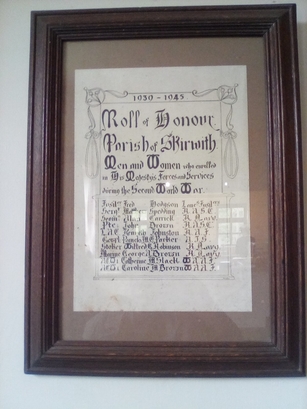 1939 - 1945
Roll of Honour
Parish of Skirwith
Men and Women who enrolled
in His Majesty's Forces and Services
during the Second World War.
Fred Hodgson
Spedding R.A.S.C.
Carrell R. Navy
Pte. John Brown
Johnston R.A.F.
Parker A.T.S.
Stoker Wilfred R. Robinson R. Navy
George A. Brown R. Navy
Catherine M. Slack W.A.A.F.
Caroline M. Brown W.A.A.F.